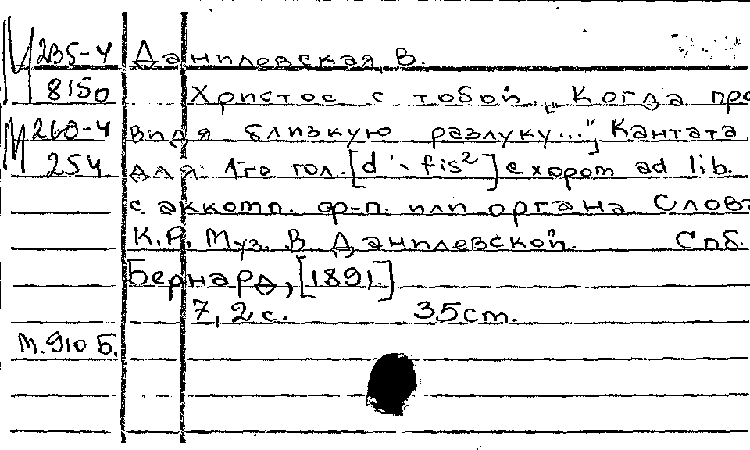 М 235-4 Данилевская, В.
8150 Христос с тобой. „Когда пред
М 260-4 видя близкую разлуку...", Кантата
254 для 1го гол. [d'-fis²] с хором ad lib.
с аккомп. ф-п. или органа Слова
К.Р. Муз. В. Данилевской. Спб.
Бернард, [1891]
7, 2 с. 35 cm.
М.910 Б.